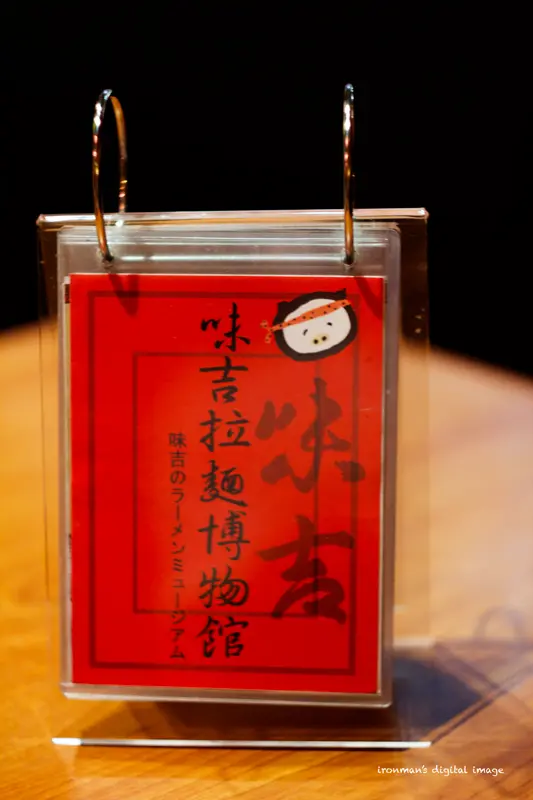 味吉
味吉拉麵博物館
味吉のラーメンミュージアム
ironman's digital image